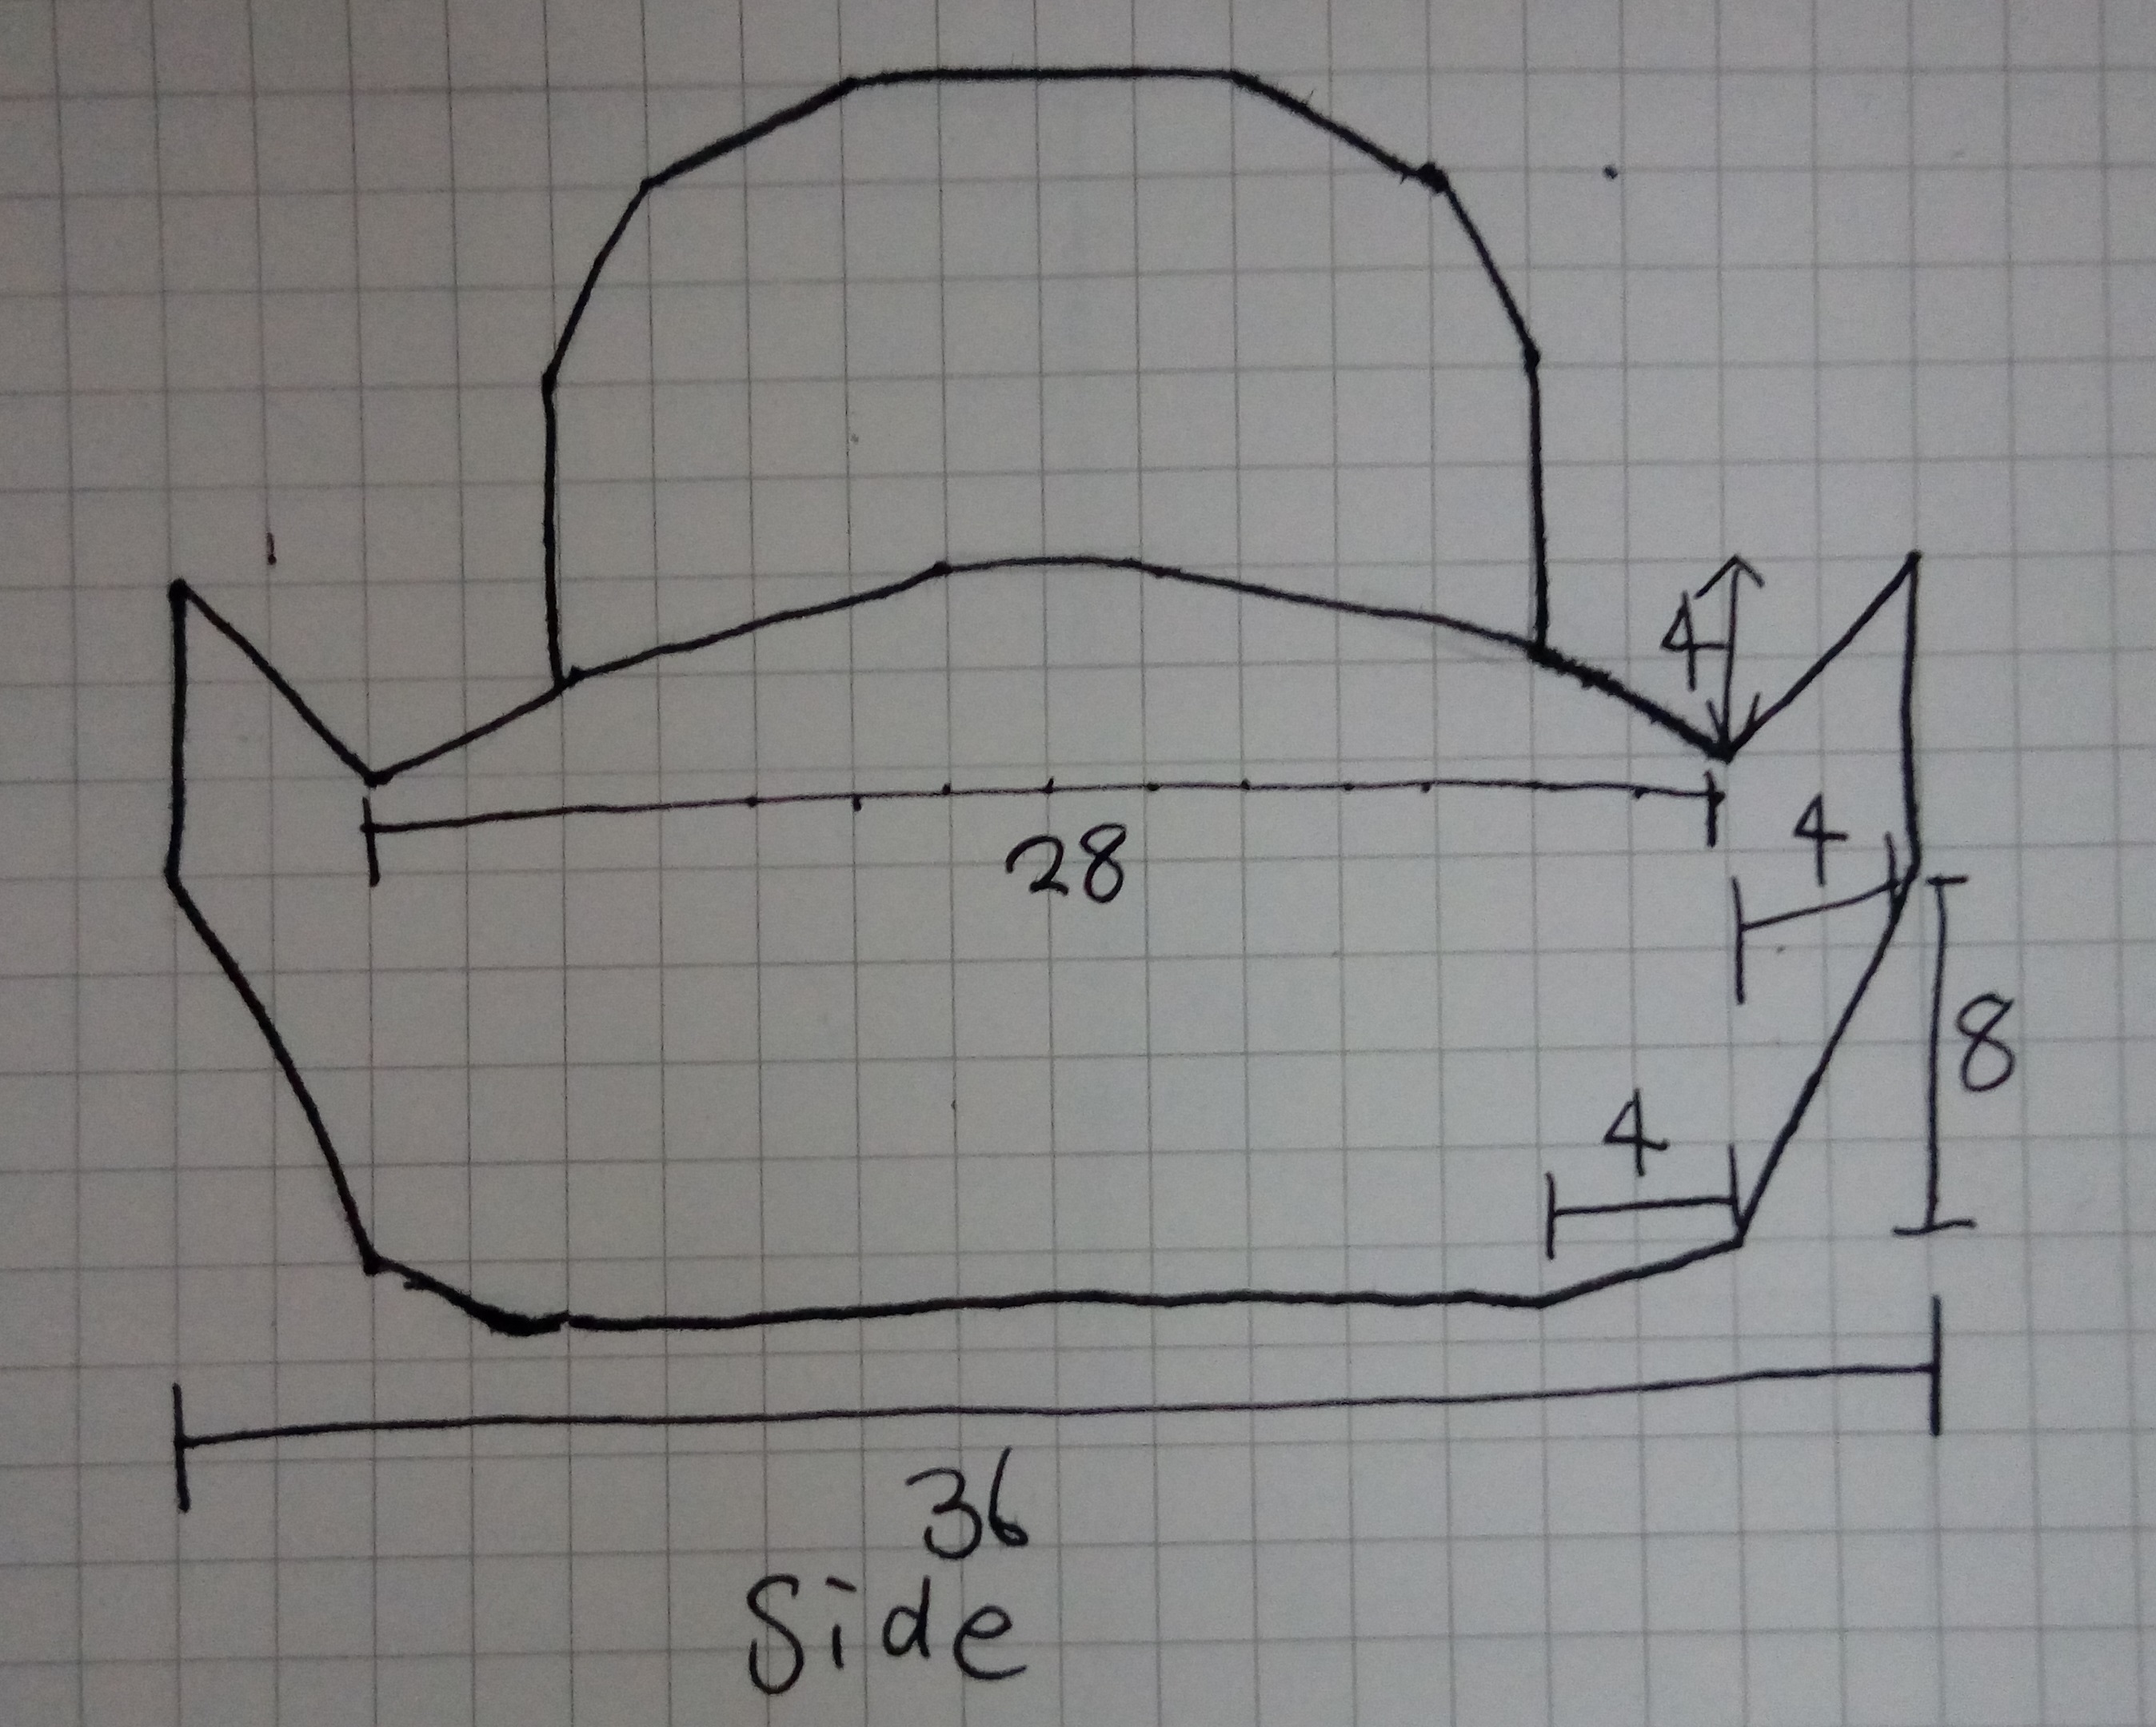 4
28
4
8
4
36
Side